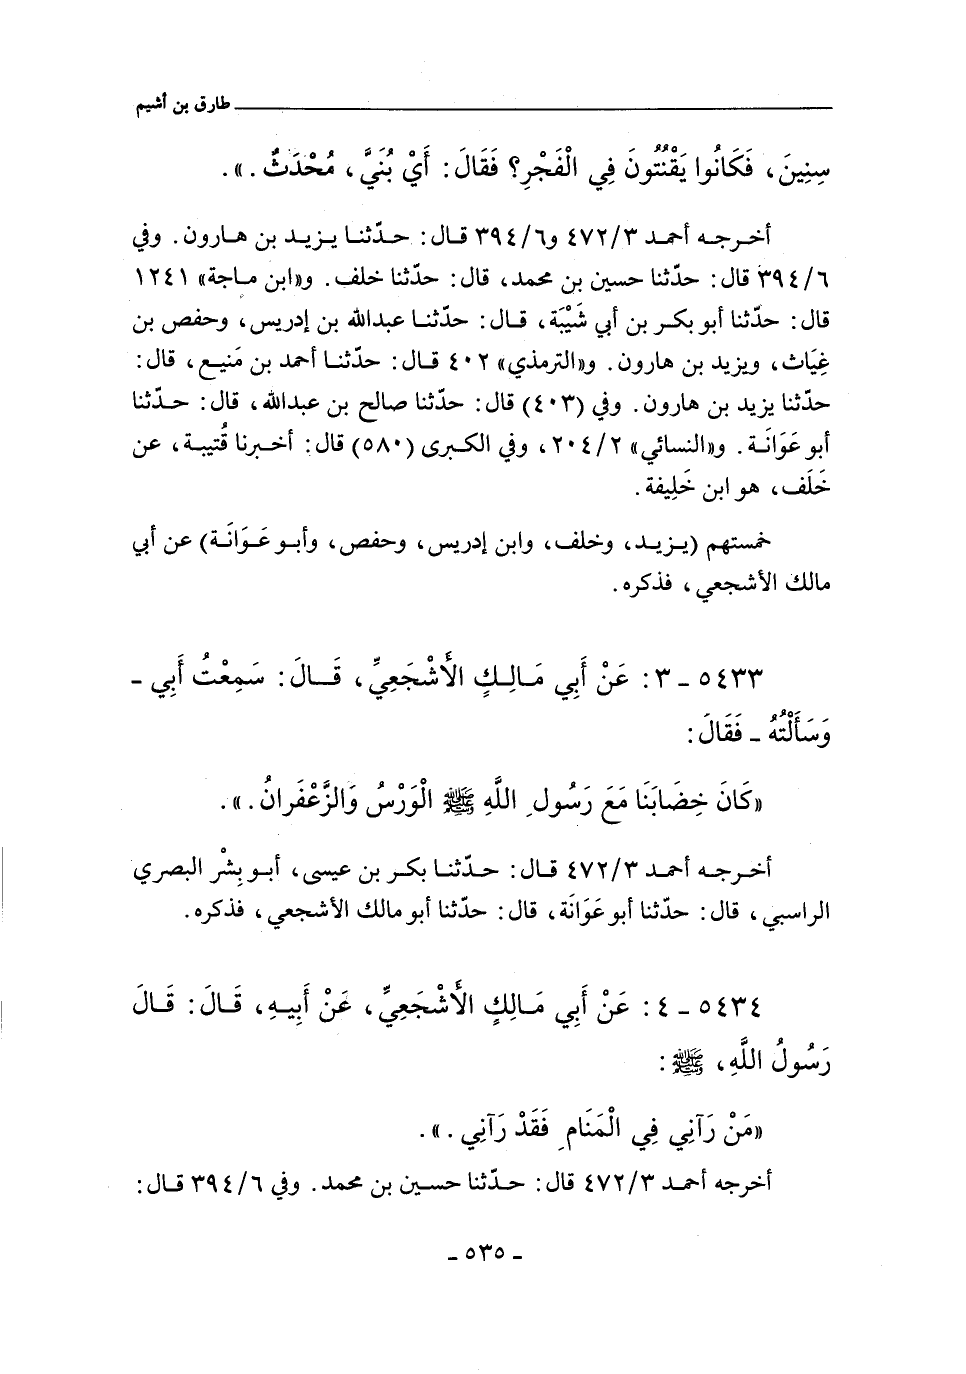 طارق بن أشيم
سِنِينَ، فَكَانُوا يَقْنُتُونَ فِي الْفَجْرِ؟ فَقَالَ: أَيْ بُنَيَّ، مُحْدَثٌ.».
أخرجه أحمد ٤٧٢/٣ و٣٩٤/٦ قال: حدّثنا يزيد بن هارون. وفي
٣٩٤/٦ قال: حدّثنا حسين بن محمد، قال: حدّثنا خلف. و«ابن ماجة» ١٢٤١
قال: حدّثنا أبو بكر بن أبي شَيْبَة، قال: حدّثنا عبدالله بن إدريس، وحفص بن
غِيَاث، ويزيد بن هارون. و«الترمذي» ٤٠٢ قال: حدّثنا أحمد بن مَنيع، قال:
حدّثنا يزيد بن هارون. وفي (٤٠٣) قال: حدّثنا صالح بن عبدالله، قال: حدّثنا
أبو عَوَانَة. و«النسائي» ٢٠٤/٢، وفي الكبرى (٥٨٠) قال: أخبرنا قُتيبة، عن
خَلَف، هو ابن خَلِيفة.
خمستهم (يزيد، وخلف، وابن إدريس، وحفص، وأبو عَوَانَة) عن أبي
مالك الأشجعي، فذكره.
٥٤٣٣ - ٣: عَنْ أَبِي مَالِكٍ الأَشْجَعِيِّ، قَالَ: سَمِعْتُ أَبِي -
وَسَأَلْتُهُ - فَقَالَ:
«كَانَ خِضَابَنَا مَعَ رَسُولِ اللَّهِ ﷺ الْوَرْسُ وَالزَّعْفَرانُ.».
أخرجه أحمد ٤٧٢/٣ قال: حدّثنا بكر بن عيسى، أبو بِشْر البصري
الراسبي، قال: حدّثنا أبو عَوَانَة، قال: حدّثنا أبو مالك الأشجعي، فذكره.
٥٤٣٤ - ٤: عَنْ أَبِي مَالِكٍ الأَشْجَعِيِّ، عَنْ أَبِيهِ، قَالَ: قَالَ
رَسُولُ اللَّهِ، ﷺ:
«مَنْ رَآنِي فِي الْمَنَامِ فَقَدْ رَآنِي.».
أخرجه أحمد ٤٧٢/٣ قال: حدّثنا حسين بن محمد. وفي ٣٩٤/٦ قال:
- ٥٣٥ -